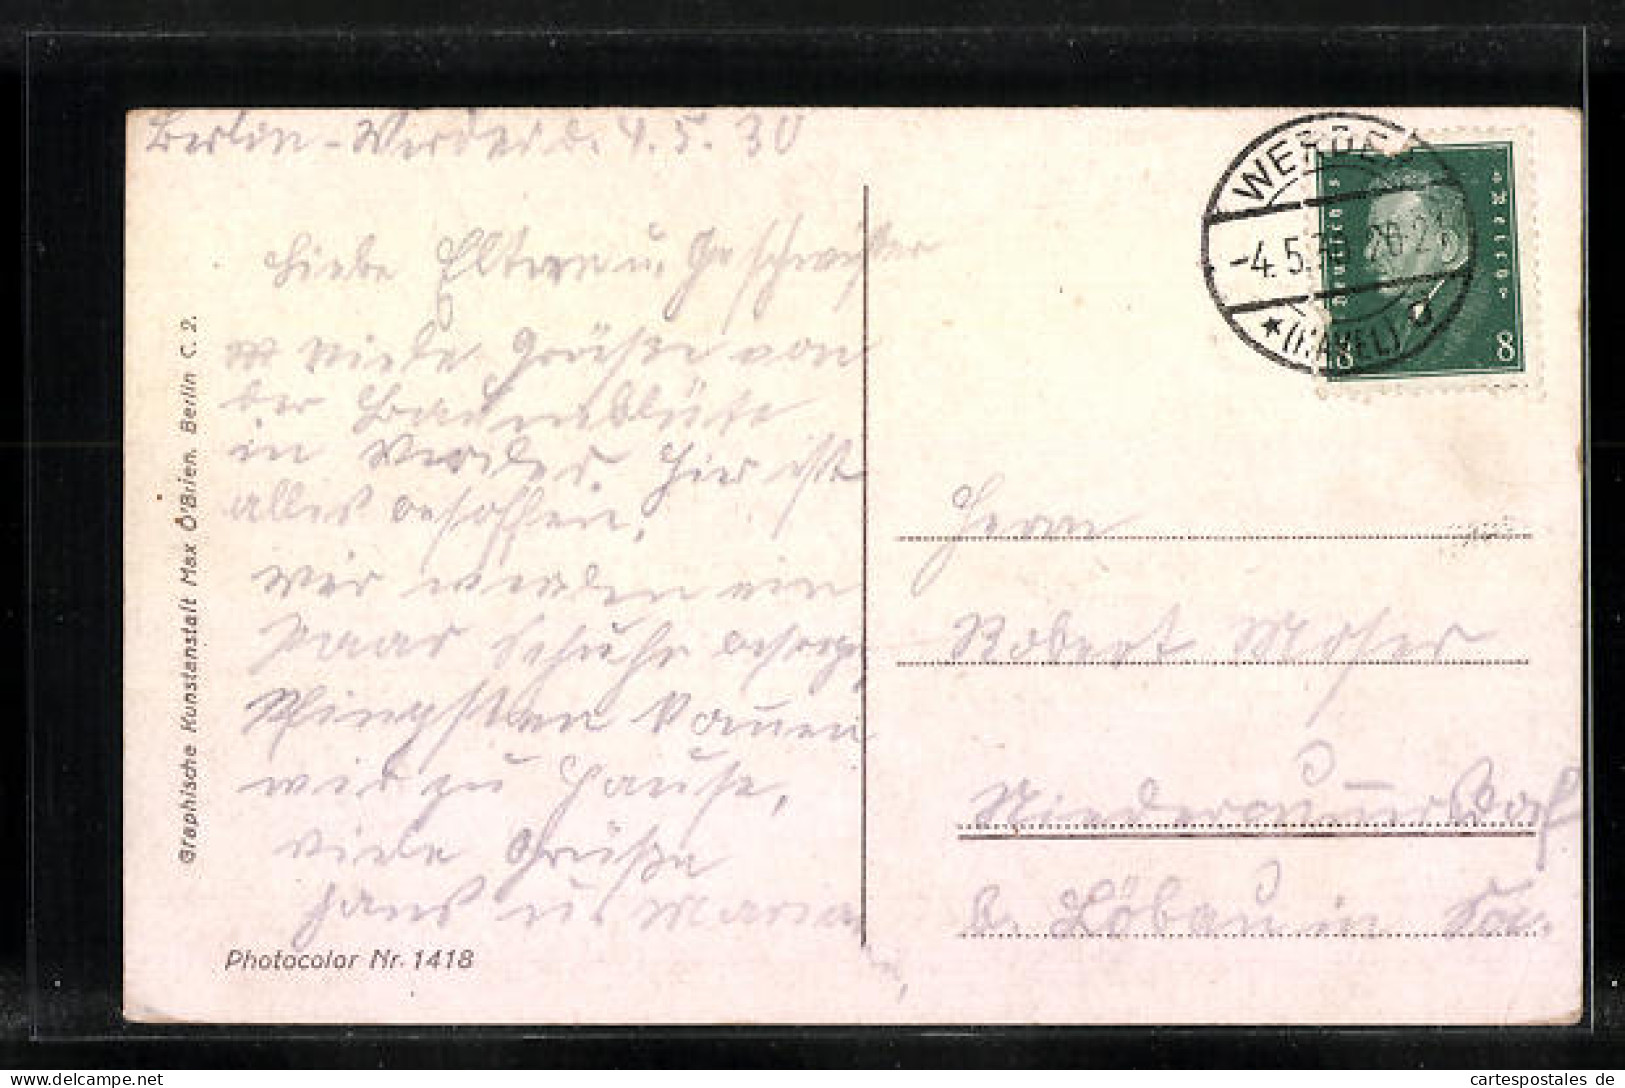 Berlin-Werder d. 4.5.30
Liebe Eltern u. Geschwister
viele Grüße von
der Baumblüte
in Werder. Hier ist
alles besoffen.
Wir werden ein
Paar Schuhe besorgen
Pfingsten kommen
wir zu Hause.
Viele Grüße
Hans u. Maria
Graphische Kunstanstalt Max O'Brien. Berlin C. 2.
Photocolor Nr. 1418
WERDER
-4.5.30 20-21
★(HAVEL) a
Deutsches Reich
8 8
Herrn
Robert Moser
Niedercunnersdorf
b. Löbau in Sa.
cartespostales de